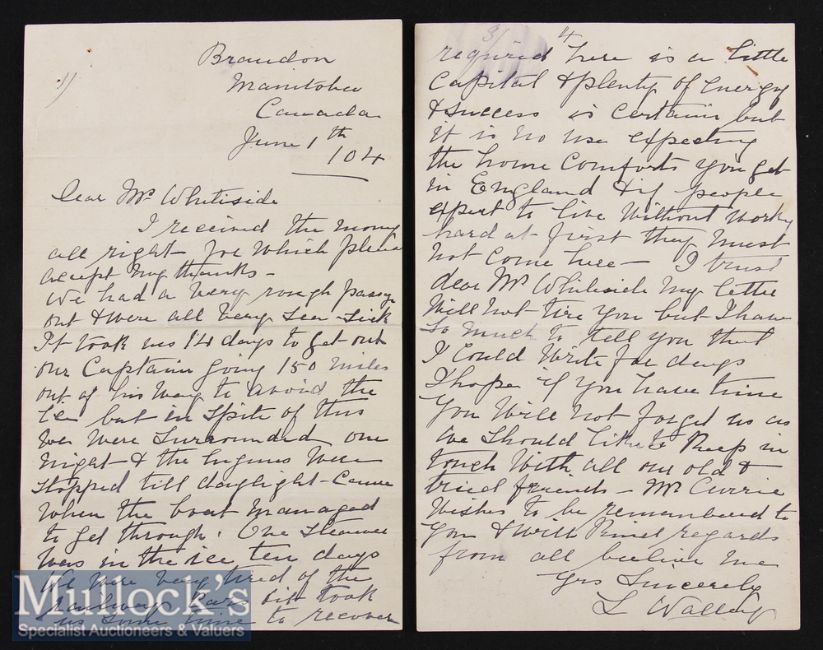 1)
Brandon
Manitoba
Canada
June 1th /04
Dear Mrs Whiteside
I received the money
all right for which please
accept my thanks -
We had a very rough passage
out & were all very sea-sick
It took us 14 days to get out
our Captain going 150 miles
out of his way to avoid the
ice but in spite of this
we were surrounded one
night & the Engines were
stopped till daylight came
when the boat managed
to get through. One Steamer
was in the ice ten days
We were very tired of the
railway cars it took
us some time to recover
3/ 4
required here is a little
Capital & plenty of Energy
& success is certain but
it is no use expecting
the home Comforts you get
in England & if people
expect to live without working
hard at first they must
not come here - I trust
dear Mrs Whiteside my letter
will not tire you but I have
so much to tell you that
I could write for days
I hope if you have time
you will not forget us as
we should like to keep in
touch with all our old &
tried friends - Mr Currie
wishes to be remembered to
you & with kind regards
from all believe me
Yrs Sincerely
L
Mullock's
Specialist Auctioneers & Valuers